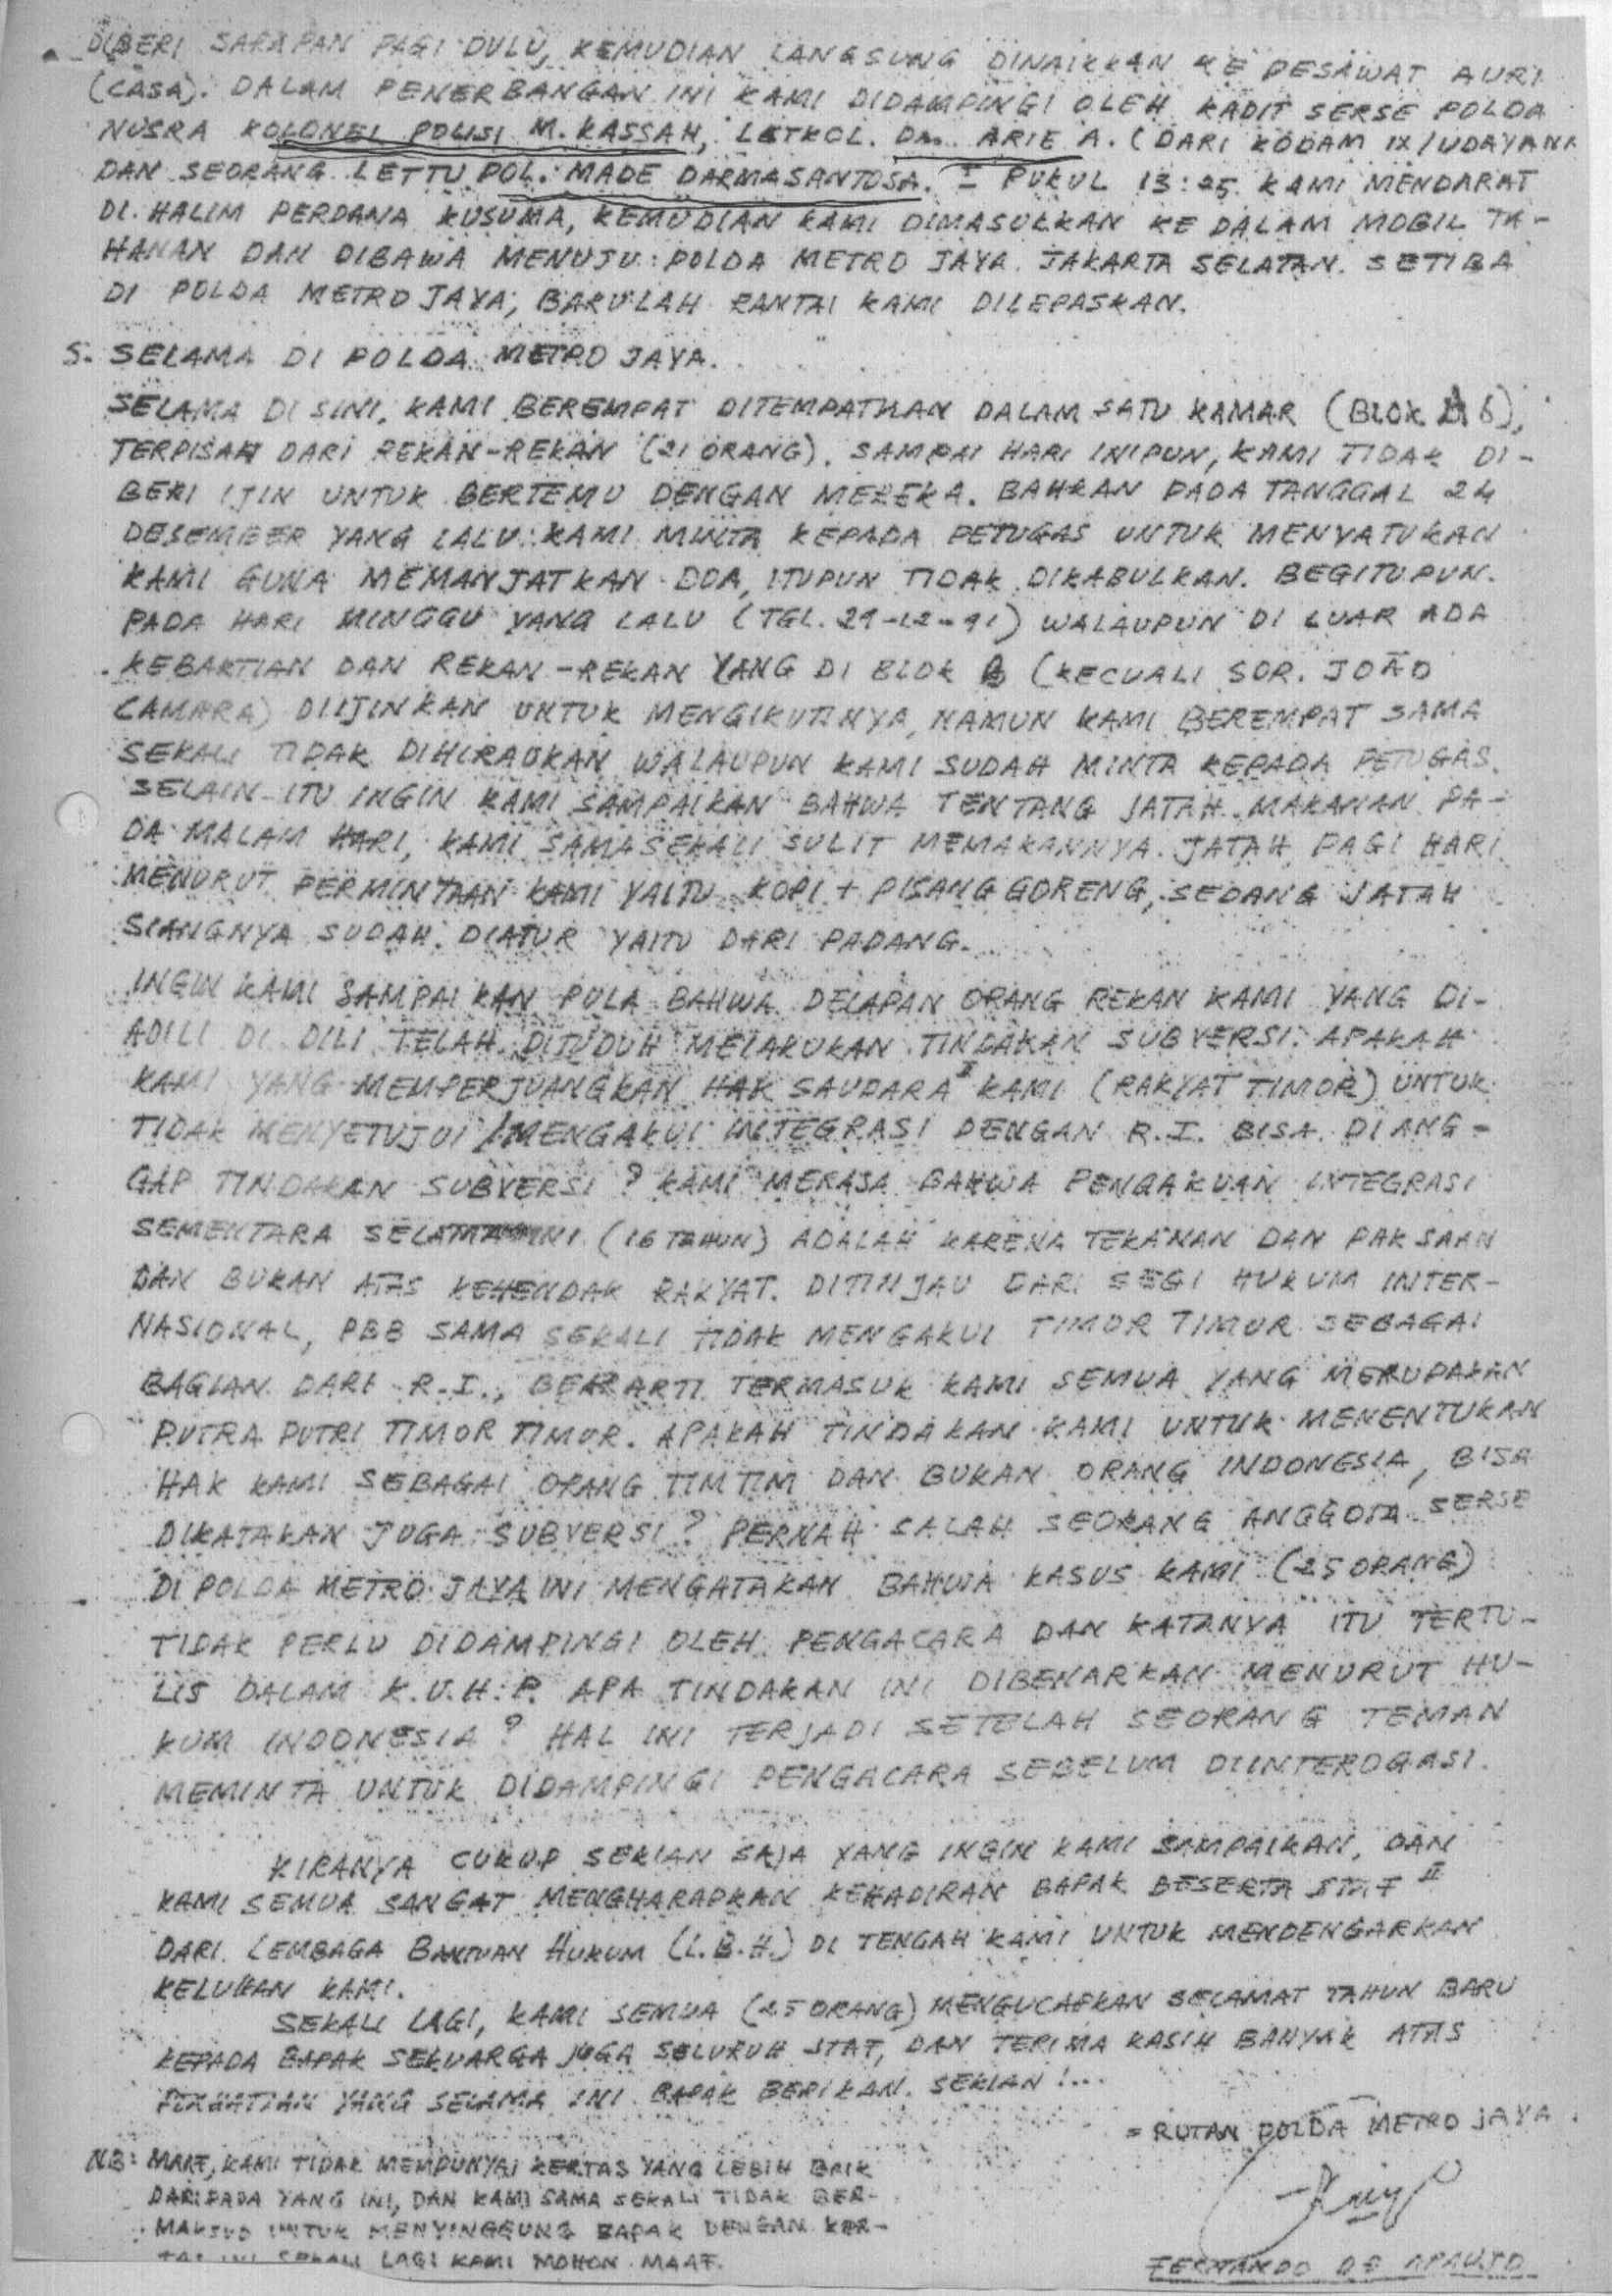 DIBERI SARAPAN PAGI DULU, KEMUDIAN LANGSUNG DINAIKKAN KE PESAWAT AURI
(CASA). DALAM PENERBANGAN INI KAMI DIDAMPINGI OLEH KADIT SERSE POLDA
NUSRA KOLONEL POLISI M. KASSAH, LETKOL. Drs. ARIE A. (DARI KODAM IX/UDAYANA
DAN SEORANG LETTU POL. MADE DARMASANTOSA. ± PUKUL 13:25 KAMI MENDARAT
DI HALIM PERDANA KUSUMA, KEMUDIAN KAMI DIMASUKKAN KE DALAM MOBIL TA-
HANAN DAN DIBAWA MENUJU POLDA METRO JAYA JAKARTA SELATAN. SETIBA
DI POLDA METRO JAYA, BARULAH RANTAI KAMI DILEPASKAN.
5. SELAMA DI POLDA METRO JAYA.
SELAMA DI SINI, KAMI BEREMPAT DITEMPATKAN DALAM SATU KAMAR (BLOK A 6),
TERPISAH DARI REKAN-REKAN (21 ORANG). SAMPAI HARI INIPUN, KAMI TIDAK DI-
BERI IJIN UNTUK BERTEMU DENGAN MEREKA. BAHKAN PADA TANGGAL 24
DESEMBER YANG LALU KAMI MINTA KEPADA PETUGAS UNTUK MENYATUKAN
KAMI GUNA MEMANJATKAN DOA, ITUPUN TIDAK DIKABULKAN. BEGITUPUN
PADA HARI MINGGU YANG LALU (TGL. 29-12-91) WALAUPUN DI LUAR ADA
KEBAKTIAN DAN REKAN-REKAN YANG DI BLOK B (KECUALI SDR. JOÃO
CAMARA) DIIJINKAN UNTUK MENGIKUTINYA, NAMUN KAMI BEREMPAT SAMA
SEKALI TIDAK DIHIRAUKAN WALAUPUN KAMI SUDAH MINTA KEPADA PETUGAS.
SELAIN ITU INGIN KAMI SAMPAIKAN BAHWA TENTANG JATAH MAKANAN PA-
DA MALAM HARI, KAMI SAMASEKALI SULIT MEMAKANNYA. JATAH PAGI HARI
MENURUT PERMINTAAN KAMI YAITU KOPI + PISANG GORENG, SEDANG JATAH
SIANGNYA SUDAH DIATUR YAITU DARI PADANG.
INGIN KAMI SAMPAIKAN PULA BAHWA DELAPAN ORANG REKAN KAMI YANG DI-
ADILI DI DILI TELAH DITUDUH MELAKUKAN TINDAKAN SUBVERSI. APAKAH
KAMI YANG MEMPERJUANGKAN HAK SAUDARA II KAMI (RAKYAT TIMOR) UNTUK
TIDAK MENYETUJUI /MENGAKUI INTEGRASI DENGAN R.I. BISA DIANG-
GAP TINDAKAN SUBVERSI? KAMI MERASA BAHWA PENGAKUAN INTEGRASI
SEMENTARA SELAMA INI (16 TAHUN) ADALAH KARENA TEKANAN DAN PAKSAAN
DAN BUKAN ATAS KEHENDAK RAKYAT. DITINJAU DARI SEGI HUKUM INTER-
NASIONAL, PBB SAMA SEKALI TIDAK MENGAKUI TIMOR TIMUR SEBAGAI
BAGIAN DARI R.I., BERARTI TERMASUK KAMI SEMUA YANG MERUPAKAN
PUTRA PUTRI TIMOR TIMUR. APAKAH TINDAKAN KAMI UNTUK MENENTUKAN
HAK KAMI SEBAGAI ORANG TIMTIM DAN BUKAN ORANG INDONESIA, BISA
DIKATAKAN JUGA SUBVERSI? PERNAH SALAH SEORANG ANGGOTA SERSE
DI POLDA METRO JAYA INI MENGATAKAN BAHWA KASUS KAMI (25 ORANG)
TIDAK PERLU DIDAMPINGI OLEH PENGACARA DAN KATANYA ITU TERTU-
LIS DALAM K.U.H.P. APA TINDAKAN INI DIBENARKAN MENURUT HU-
KUM INDONESIA? HAL INI TERJADI SETELAH SEORANG TEMAN
MEMINTA UNTUK DIDAMPINGI PENGACARA SEBELUM DIINTEROGASI.
KIRANYA CUKUP SEKIAN SAJA YANG INGIN KAMI SAMPAIKAN, DAN
KAMI SEMUA SANGAT MENGHARAPKAN KEHADIRAN BAPAK BESERTA STAF II
DARI LEMBAGA BANTUAN HUKUM (L.B.H.) DI TENGAH KAMI UNTUK MENDENGARKAN
KELUHAN KAMI.
SEKALI LAGI, KAMI SEMUA (25 ORANG) MENGUCAPKAN SELAMAT TAHUN BARU
KEPADA BAPAK SEKUARGA JUGA SELURUH STAF, DAN TERIMA KASIH BANYAK ATAS
PERHATIAN YANG SELAMA INI BAPAK BERIKAN. SEKIAN !...
= RUTAN POLDA METRO JAYA
NB: MAAF, KAMI TIDAK MEMPUNYAI KERTAS YANG LEBIH BAIK
DARIPADA YANG INI, DAN KAMI SAMA SEKALI TIDAK BER-
MAKSUD UNTUK MENYINGGUNG BAPAK DENGAN KER-
TAS INI SEKALI LAGI KAMI MOHON MAAF.
FERNANDO DE ARAUJO